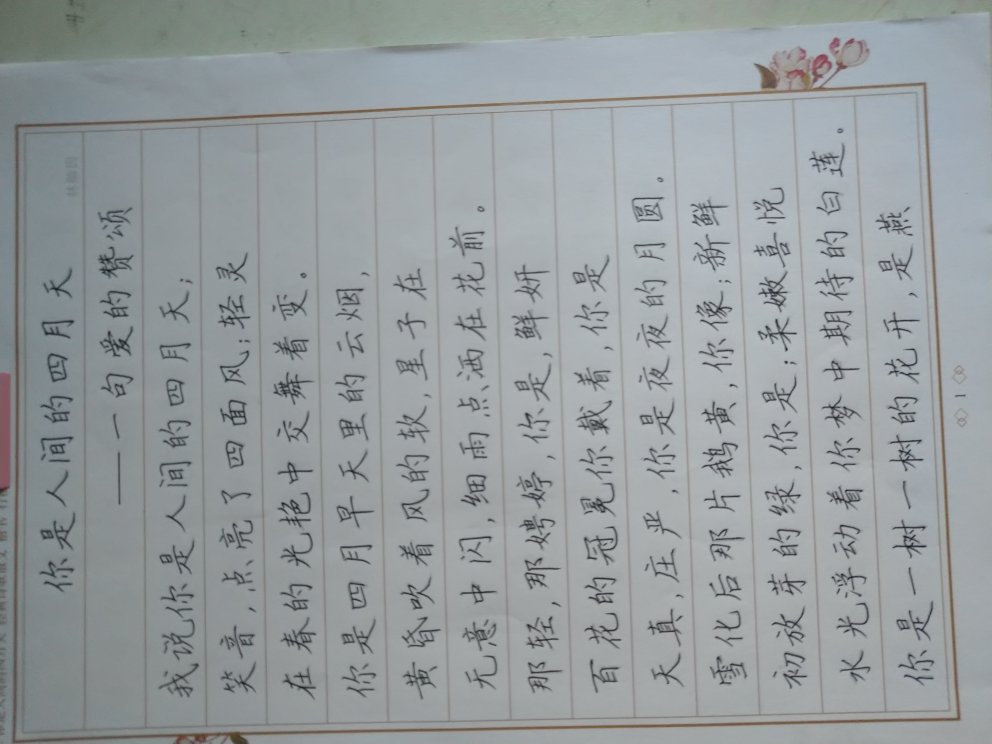 你是人间的四月天
——一句爱的赞颂
我说你是人间的四月天；
笑音，点亮了四面风；轻灵
在春的光艳中交舞着变。
你是四月早天里的云烟，
黄昏吹着风的软，星子在
无意中闪，细雨点洒在花前。
那轻，那娉婷，你是，鲜妍
百花的冠冕你戴着，你是
天真，庄严，你是夜夜的月圆。
雪化后那片鹅黄，你像；新鲜
初放芽的绿，你是；柔嫩喜悦
水光浮动着你梦中期待的白莲。
你是一树一树的花开，是燕
1